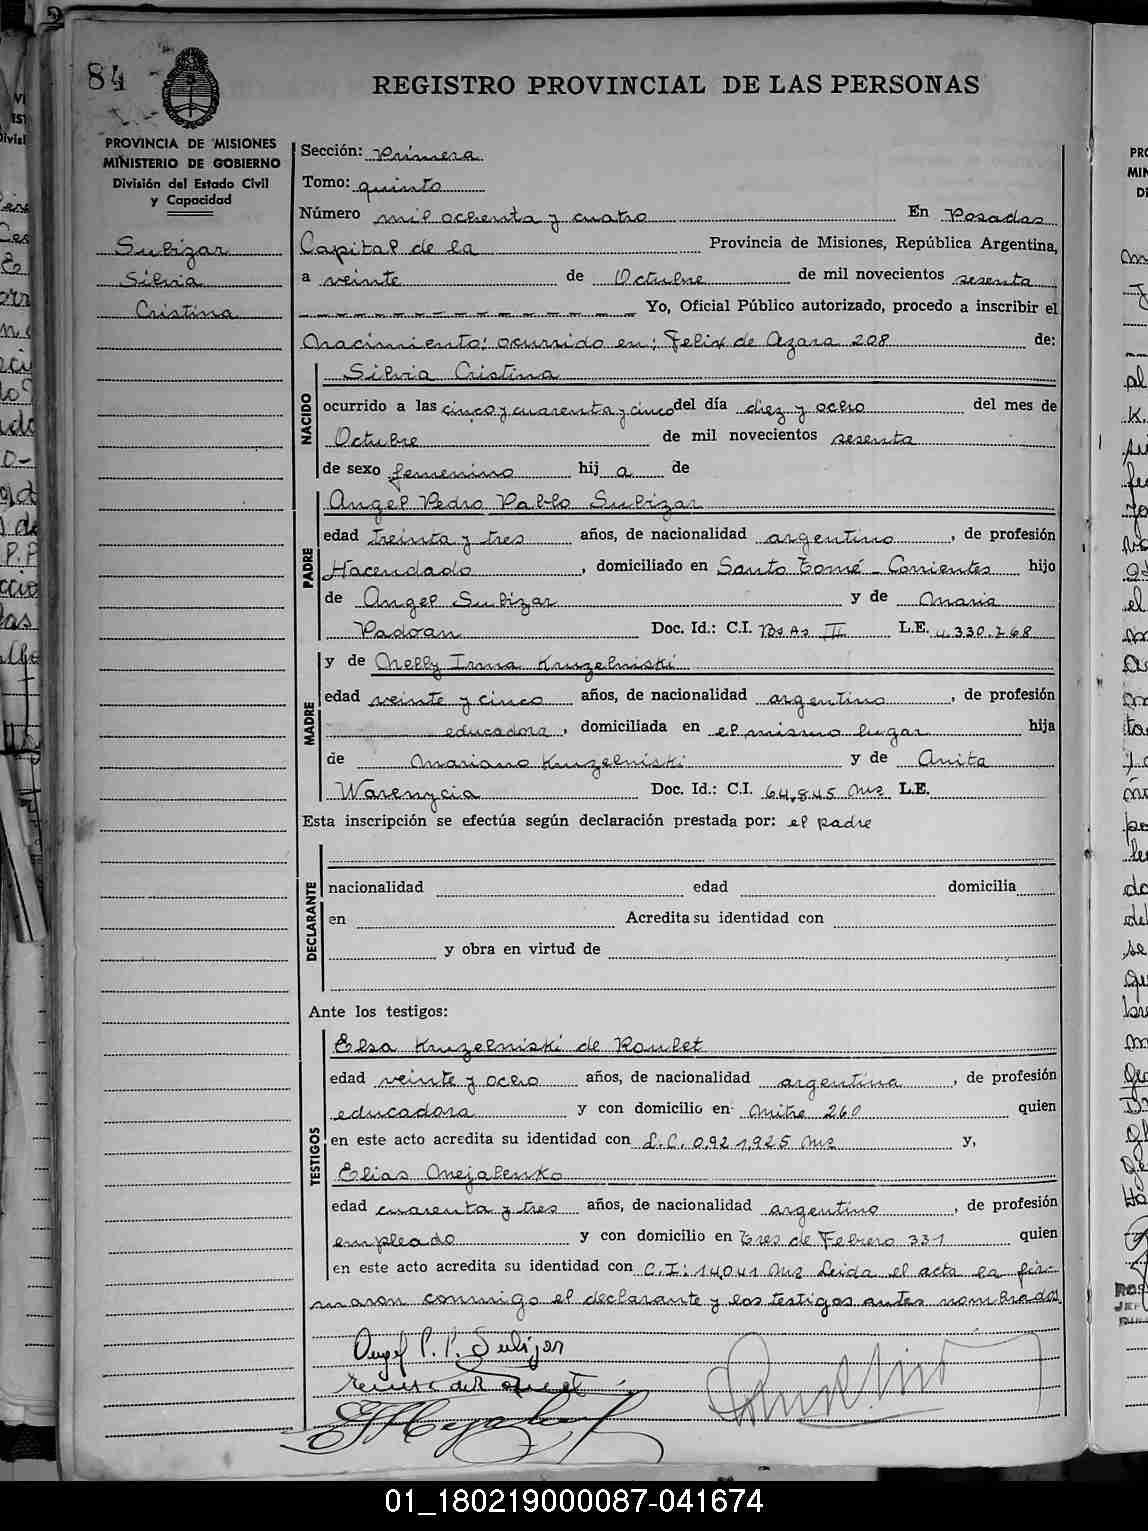 84
REGISTRO PROVINCIAL DE LAS PERSONAS
PROVINCIA DE MISIONES
MINISTERIO DE GOBIERNO
División del Estado Civil
y Capacidad
Subizar
Silvia
Cristina
Sección: Primera
Tomo: quinto
Número mil ochenta y cuatro En Posadas
Capital de la Provincia de Misiones, República Argentina,
a veinte de Octubre de mil novecientos sesenta
Yo, Oficial Público autorizado, procedo a inscribir el
Nacimiento: ocurrido en: Felix de Azara 208 de:
NACIDO
Silvia Cristina
ocurrido a las cinco y cuarenta y cinco del día diez y ocho del mes de
Octubre de mil novecientos sesenta
de sexo femenino hij a de
PADRE
Angel Pedro Pablo Subizar
edad treinta y tres años, de nacionalidad argentino, de profesión
Hacendado, domiciliado en Santo Tomé - Corrientes hijo
de Angel Subizar y de Maria
Padoan Doc. Id.: C.I. Bs As III L.E. 4.330.268
MADRE
y de Nelly Irma Kruzelniski
edad veinte y cinco años, de nacionalidad argentino, de profesión
educadora, domiciliada en el mismo lugar hija
de Mariano Kruzelniski y de Anita
Warenycia Doc. Id.: C.I. 64,845 Ms L.E.
Esta inscripción se efectúa según declaración prestada por: el padre
DECLARANTE
nacionalidad edad domicilia
en Acredita su identidad con
y obra en virtud de
Ante los testigos:
TESTIGOS
Elsa Kruzelniski de Roulet
edad veinte y ocho años, de nacionalidad argentina, de profesión
educadora y con domicilio en Mitre 260 quien
en este acto acredita su identidad con L.C. 0,921,925 Ms y,
Elias Mejalenko
edad cuarenta y tres años, de nacionalidad argentino, de profesión
empleado y con domicilio en Tres de Febrero 331 quien
en este acto acredita su identidad con C.I: 14,041 Ms Leida el acta la fir
maron conmigo el declarante y los testigos antes nombrados
Angel P. P. Subizar
01_180219000087-041674